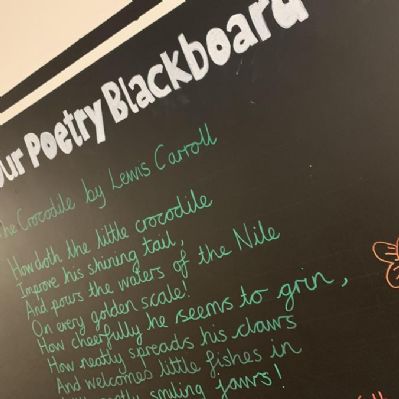 Our Poetry Blackboard
The Crocodile by Lewis Carroll
How doth the little crocodile
Improve his shining tail,
And pours the waters of the Nile
On every golden scale!
How cheerfully he seems to grin,
How neatly spreads his claws
And welcomes little fishes in
smiling jaws!